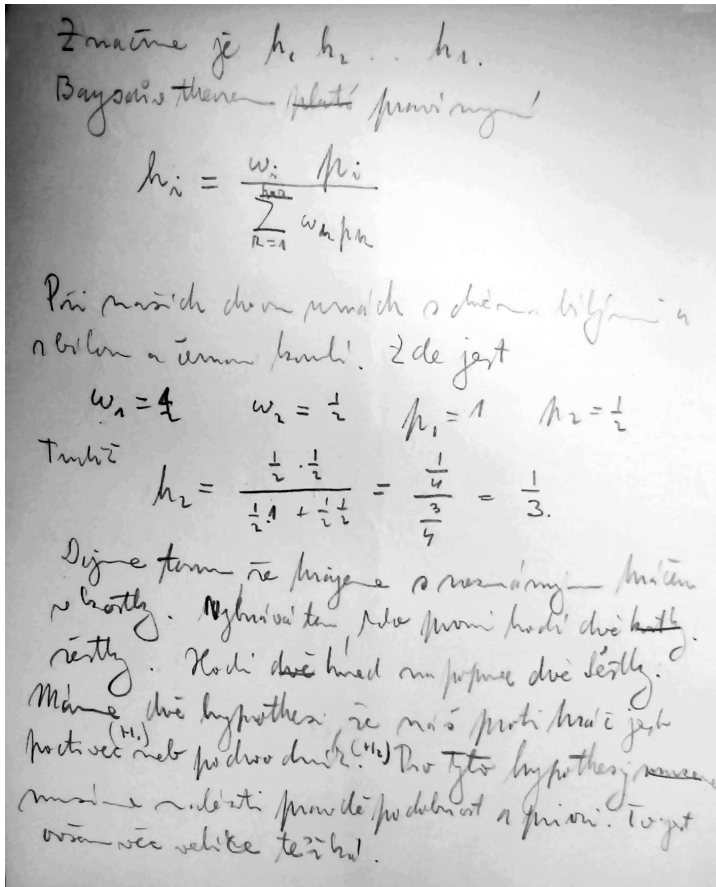 Značíme je h₁ h₂ . . . h₁.
theorem ~~platí~~ praví nyní
hᵢ = ωᵢ pᵢ / ∑ₖ₌₁ ωₖ pₖ
Při našich dvou urnách s dvěma bílými a
s bílou a černou koulí. Zde jest
ω₁ = ½ ω₂ = ½ p₁ = 1 p₂ = ½
Tudíž
h₂ = (½ · ½) / (½·1 + ½ ½) = (¼) / (¾) = ⅓.
Dejme tomu že hrajeme s neznámým hráčem
v kostky. Vyhrává ten, kdo první hodí dvě ~~kostky~~.
šestky. Hodí ~~dvě~~ hned na poprvé dvě šestky.
Máme dvě hypothesi, že náš proti hráč jest
poctivec (H₁) neb podvodník. (H₂) Pro tyto hypothesy
musíme nalézti pravdě podobnost a priori. To jest
ovšem věc velice těžká.